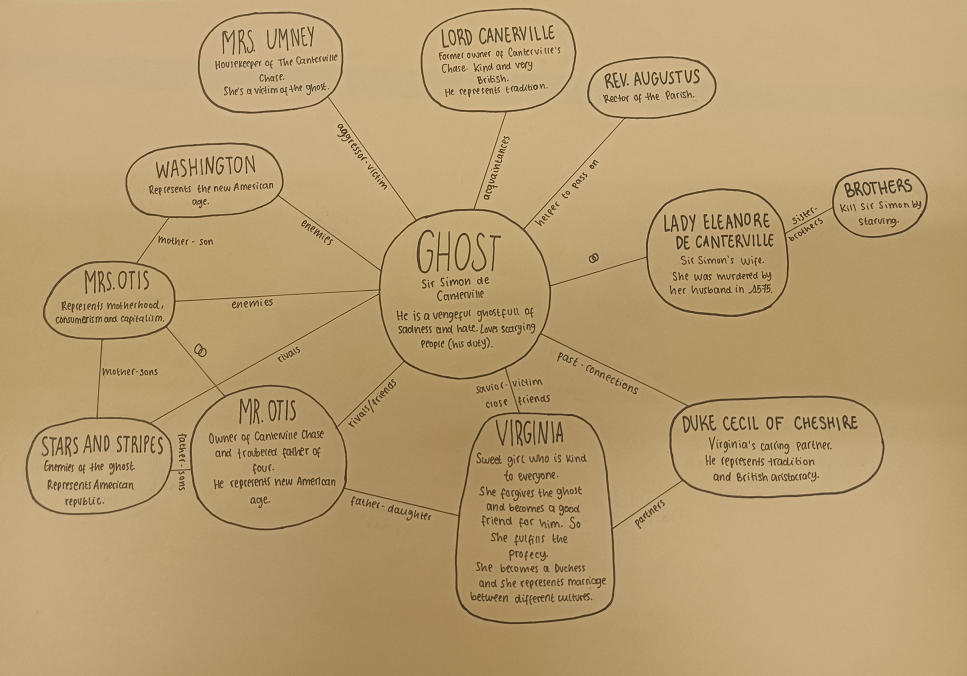 MRS. UMNEY
Housekeeper of The Canterville
Chase.
She's a victim of the ghost.
LORD CANERVILLE
Former owner of Canterville's
Chase. Kind and very
British.
He represents tradition.
REV. AUGUSTUS
Rector of the Parish.
aggressor-victim
acquaintances
helper to pass on
WASHINGTON
Represents the new American
age.
enemies
mother - son
MRS. OTIS
Represents motherhood,
consumerism and capitalism.
enemies
GHOST
Sir Simon de
Canterville
He is a vengeful ghost full of
sadness and hate. Loves scarying
people (his duty).
LADY ELEANORE
DE CANTERVILLE
Sir Simon's wife.
She was murdered by
her husband in 1575.
sister-
brothers
BROTHERS
Kill Sir Simon by
starving.
mother-sons
rivals
rivals/friends
savior-victim
close friends
past-connections
STARS AND STRIPES
Enemies of the ghost.
Represents American
republic.
father-sons
MR. OTIS
Owner of Canterville Chase
and troubered father of
four.
He represents new American
age.
father-daughter
VIRGINIA
Sweet girl who is kind
to everyone.
She forgives the ghost
and becomes a good
friend for him. So
she fulfills the
profecy.
She becomes a Duchess
and she represents marriage
between different cultures.
partners
DUKE CECIL OF CHESHIRE
Virginia's caring partner.
He represents tradition
and British aristocracy.